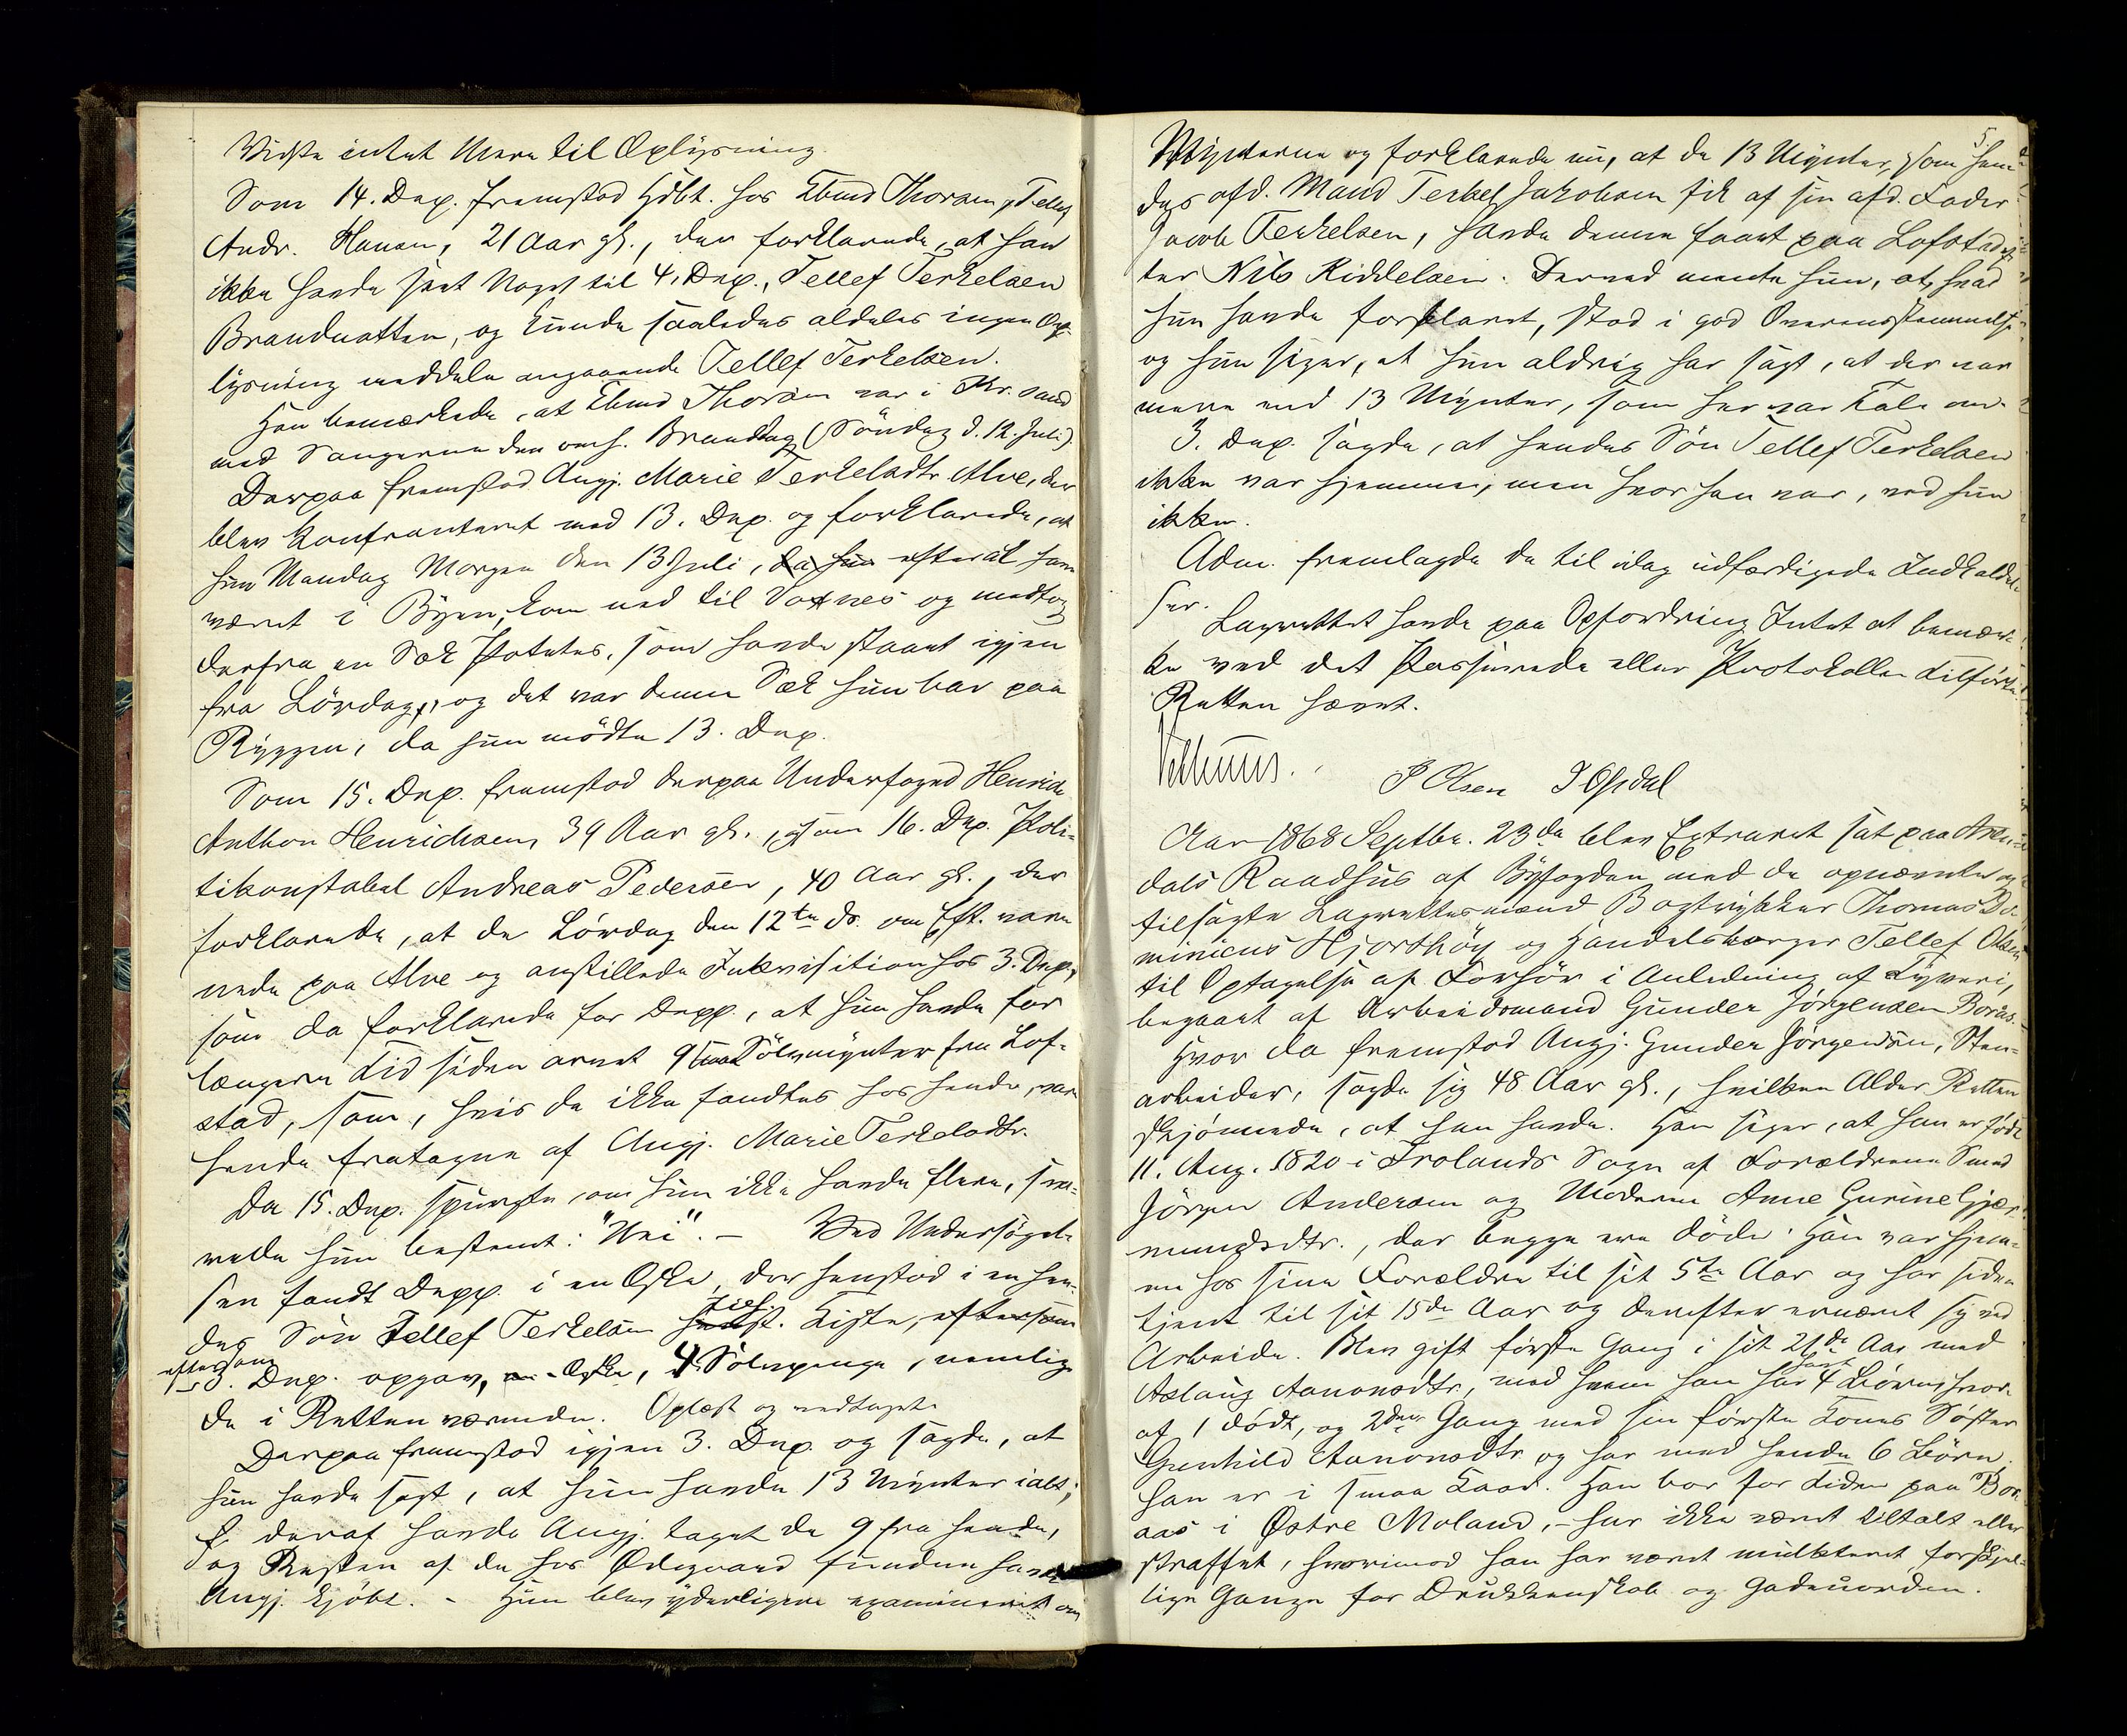 Vidste intet Mere til Oplysning.
Som 14. Dep. fremstod Hdbt. hos Ebmd Thorsen, Tellef
Andr. Hansen, 21 Aar gl., der forklarede, at han
ikke havde seet Noget til 4. Dep., Tellef Terkelsen
Brandnatten, og kunde saaledes aldeles ingen Op-
lysning meddele angaaende Tellef Terkelsen.
Han bemærkede, at Ebmd Thorsen var i Kr.sand
med Sangerne den omh. Branddag (Söndag d. 12. Juli).
Derpaa fremstod Angj. Marie Terkelsdtr Alve, der
blev konfronteret med 13. Dep. og forklarede, at
hun Mandag Morgen den 13 Juli, da hun efterat have
været i Byen, kom ned til Voxnes og medtog
derfra en Sæk Potetes, som havde staaet igjen
fra Lördag, og det var denne Sæk hun bar paa
Ryggen, da hun mödte 13. Dep.
Som 15. Dep. fremstod derpaa Underfoged Henrich
Anthon Henrichsen, 39 Aar gl., og som 16. Dep. Poli-
tikonstabel Andreas Pedersen, 40 Aar gl., der
forklarede, at de Lördag den 12te ds. om Eft. vare
nede paa Alve og anstillede Inkvisition hos 3. Dep.,
som da forklarede for Depp., at hun havde for
længere Tid siden arvet 9 smaa Sölvmynter fra Lof-
stad, som, hvis de ikke fandtes hos hende, vare
hende fratagne af Angj. Marie Terkelsdtr.
Da 15. Dep. spurgte, om hun ikke havde flere, sva-
rede hun bestemt: "Nei". – Ved Undersögel-
sen fandt Depp. i en Æske, der henstod i en hen-
des Sön Tellef Terkelsen tilh. Kiste, eftersom
eftersom 3. Dep. opgav, en Æske, 4 Sölvpenge, nemlig
de i Retten værende. Oplæst og vedtaget.
Derpaa fremstod igjen 3. Dep. og sagde, at
hun havde sagt, at hun havde 13 Mynter ialt;
deraf havde Angj. taget de 9 fra hende,
og Resten af de hos Ödegaard fundne havde
Angj. kjöbt. – Hun blev yderligere examineret om
5
Mynterne og forklarede nu, at de 13 Mynter, som hen-
des afd. Mand Terkel Jakobsen fik af sin afd. Fader
Jacob Terkelsen, havde denne faaet paa Lofstad ef-
ter Nils Kiddelsen. Derved mente hun, at, hvad
hun havde forklaret, stod i god Overensstemmelse
og hun siger, at hun aldrig har sagt, at der var
mere end 13 Mynter, som her var Tale om.
3. Dep. sagde, at hendes Sön Tellef Terkelsen
ikke var hjemme, men hvor han var, ved hun
ikke.
Adm. fremlagde de til idag udfærdigede Indkaldel-
ser.
Lagrettet havde paa Opfordring Intet at bemær-
ke ved det Passerede eller Protokollen Tilförte.
Retten hævet.
P Olsen J Opdal
Aar 1868 Septbr. 23de blev Extraret sat paa Aren-
dals Raadhus af Byfogden med de opnævnte og
tilsagte Lagrettesmænd Bogtrykker Thomas Do-
minicus Hjorthöy og Handelsborger Tellef Olsen
til Optagelse af Forhör i Anledning af Tyveri,
begaaet af Arbeidsmand Gunder Jörgensen Boraas.
Hvor da fremstod Angj. Gunder Jörgensen, Sten-
arbeider, sagde sig 48 Aar gl., hvilken Alder Retten
skjönnede, at han havde. Han siger, at han er född
11. Aug. 1820 i Frolands Sogn af Forældrene Smed
Jörgen Andersen og Moderen Anne Gurine Gjær-
mundsdtr., der begge ere döde. Han var hjem-
me hos sine Forældre til sit 5te Aar og har siden
tjent til sit 15de Aar og derefter ernæret sig ved
Arbeide. Blev gift förste Gang i sit 21de Aar med
Aslaug Aanonsdtr, med hvem han har havt 4 Börn, hvor-
af 1 dödt, og 2den Gang med sin förste Kones Söster
Gunhild Aanonsdtr og har med hende 6 Börn.
Han er i smaa Kaar. Han bor for Tiden paa Bor-
aas i Østre Moland, – har ikke været tiltalt eller
straffet, hvorimod han har været mulkteret forskjel-
lige Gange for Drukkenskab og Gadeuorden.